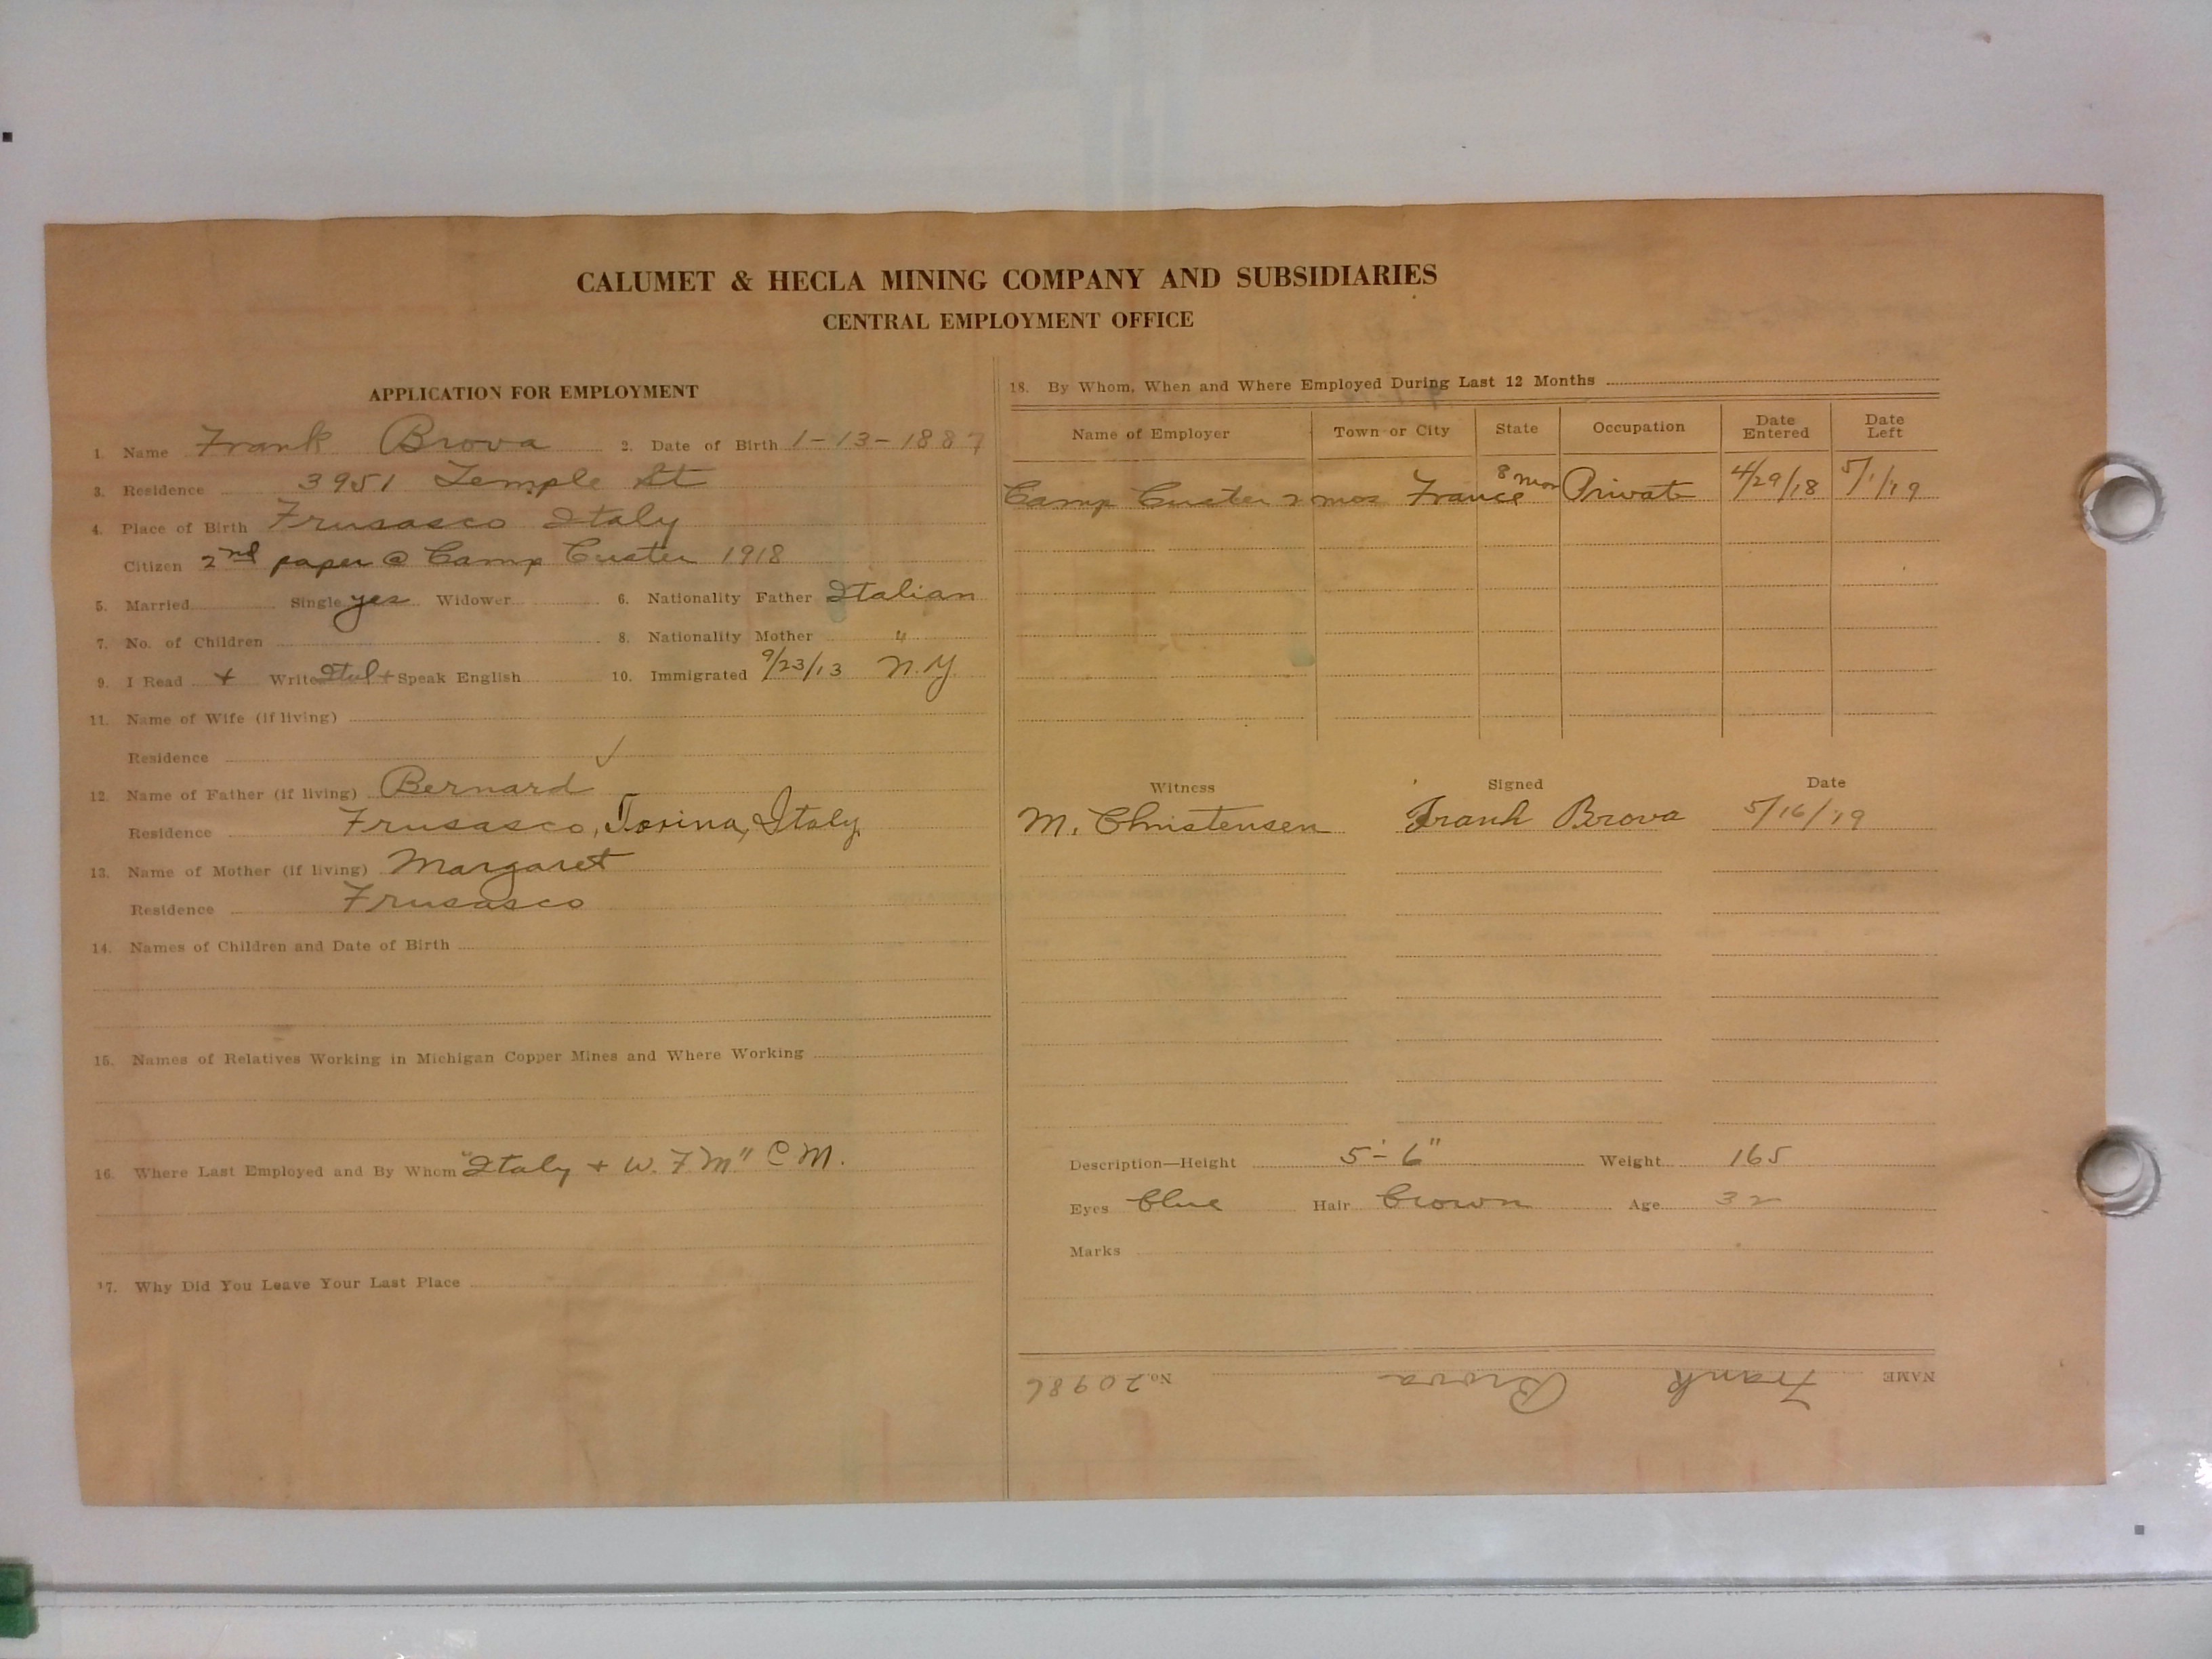 CALUMET & HECLA MINING COMPANY AND SUBSIDIARIES
CENTRAL EMPLOYMENT OFFICE
APPLICATION FOR EMPLOYMENT
1. Name Frank Brova 2. Date of Birth 1-13-1887
3. Residence 3951 Temple St
4. Place of Birth Frusasco Italy
Citizen 2nd paper @ Camp Custer 1918
5. Married Single yes Widower 6. Nationality Father Italian
7. No. of Children 8. Nationality Mother "
9. I Read + Write Ital + Speak English 10. Immigrated 9/23/13 N.Y.
11. Name of Wife (if living)
Residence ✓
12. Name of Father (if living) Bernard
Residence Frusasco, Torino, Italy.
13. Name of Mother (if living) Margaret
Residence Frusasco
14. Names of Children and Date of Birth
15. Names of Relatives Working in Michigan Copper Mines and Where Working
16. Where Last Employed and By Whom "Italy + W. F M" C M.
17. Why Did You Leave Your Last Place
18. By Whom, When and Where Employed During Last 12 Months
Name of Employer Town or City State Occupation Date Entered Date Left
Camp Custer 2 mos France 8 mos Private 4/29/18 5/1/19
Witness Signed Date
M. Christensen Frank Brova 5/16/19
Description—Height 5'-6" Weight 165
Eyes blue Hair brown Age 32
Marks
NAME Frank Brova No. 20986